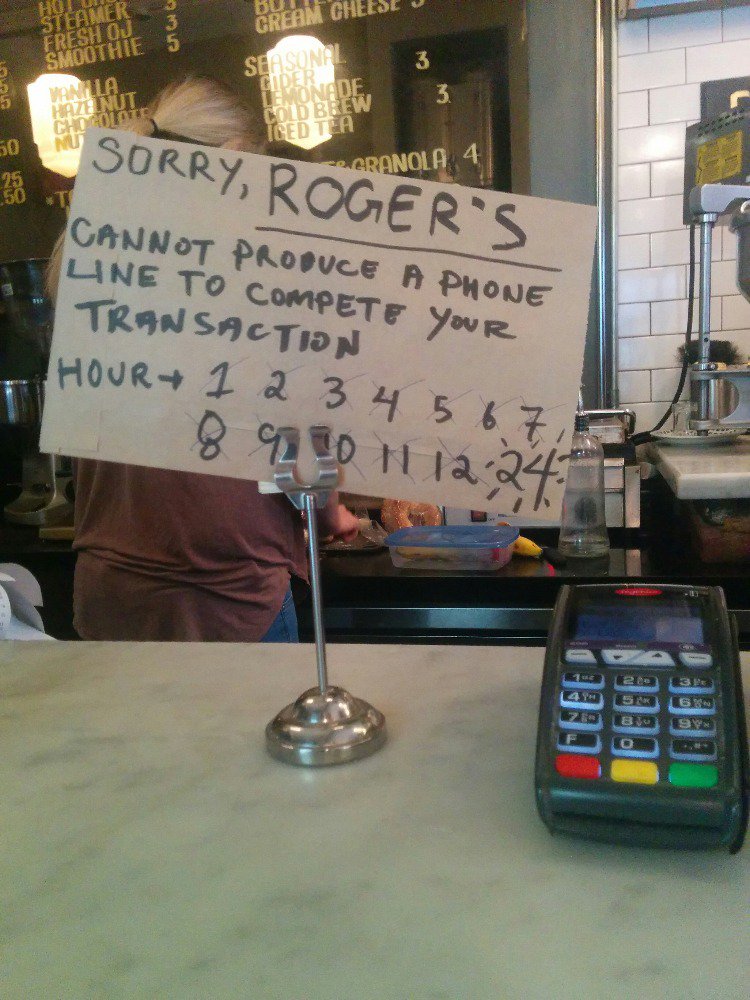 HOT CHOC
STEAMER 3
FRESH OJ 3
SMOOTHIE 5
CREAM CHEESE
VANILLA
HAZELNUT
CHOCOLATE
NUT
SEASONAL
CIDER 3
LEMONADE
COLD BREW 3
ICED TEA
GRANOLA 4
SORRY, ROGER'S
CANNOT PRODUCE A PHONE
LINE TO COMPETE YOUR
TRANSACTION
HOUR → 1 2 3 4 5 6 7
8 9 10 11 12 24
1 2 3
4 5 6
7 8 9
F 0